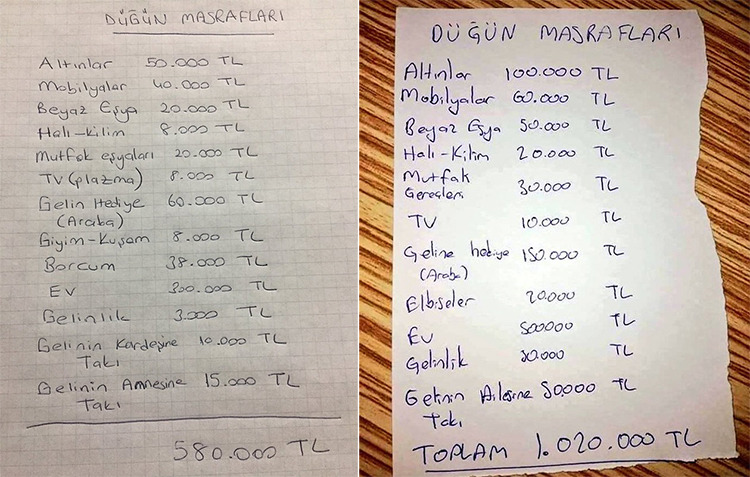 DÜĞÜN MASRAFLARI
Altınlar 50.000 TL
Mobilyalar 40.000 TL
Beyaz Eşya 20.000 TL
Halı-Kilim 8.000 TL
Mutfak eşyaları 20.000 TL
TV (plazma) 8.000 TL
Gelin Hediye 60.000 TL
(Araba)
Giyim-Kuşam 8.000 TL
Borcum 38.000 TL
Ev 300.000 TL
Gelinlik 3.000 TL
Gelinin Kardeşine 10.000 TL
Takı
Gelinin Annesine 15.000 TL
Takı
580.000 TL
DÜĞÜN MASRAFLARI
Altınlar 100.000 TL
Mobilyalar 60.000 TL
Beyaz Eşya 50.000 TL
Halı-Kilim 20.000 TL
Mutfak
Gereçleri 30.000 TL
TV 10.000 TL
Geline hediye 150.000 TL
(Araba)
Elbiseler 20.000 TL
Ev 500000 TL
Gelinlik TL
Gelinin Ailesine 50.000 TL
Takı
TOPLAM 1.020.000 TL